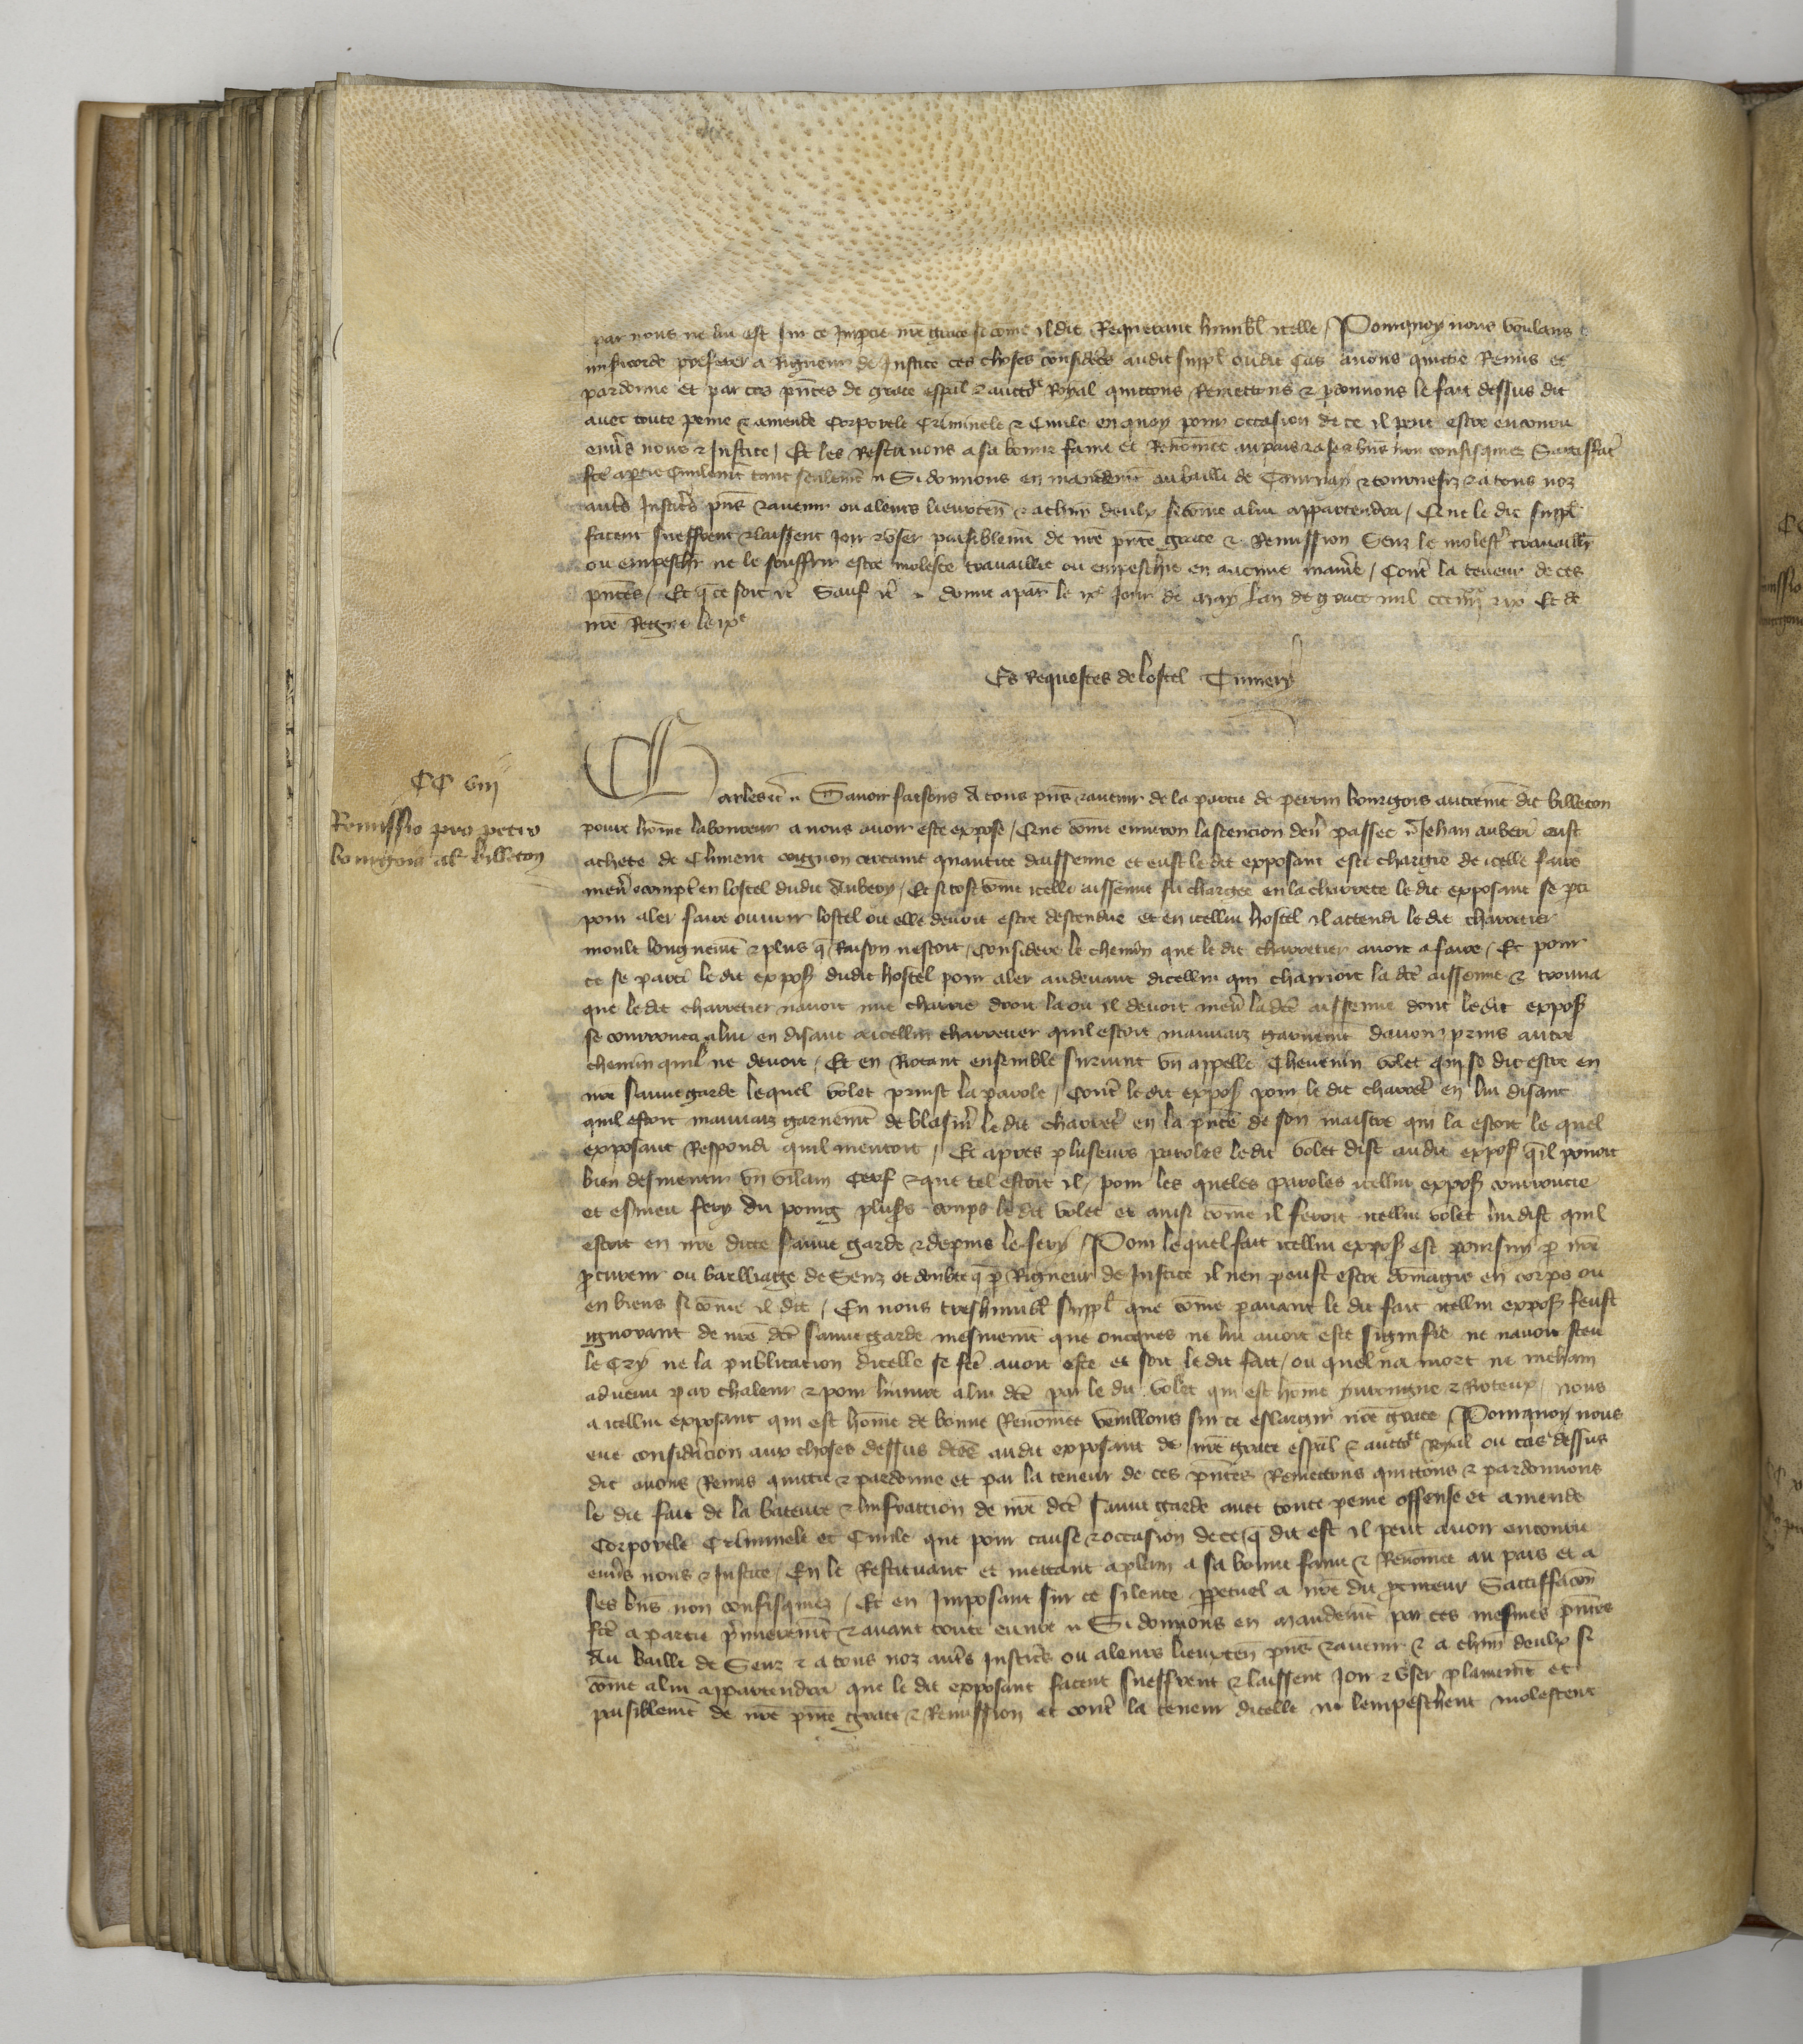 par nous ne lui est sur ce impartie nre grace si come il dit Requerant humblt icelle / Pourquoy nous voulans
misericorde preferer a Rigueur de Justice ces choses considerees audit suppl oudit cas avons quictie Remis et
pardonne et par ces pntes de grace espal & auctte Royal quictons Remettons & pdonnons le fait dessus dit
avec toute peine & amende corporele criminele & civile en quoy pour occasion de ce il peut estre encouru
envs nous & Justice / Et les Restituons a sa bonne fame et Renommee au pais & a ses biens non confisquez Satisfact
fcte a partie civilement tant seulement Si donnons en mandemt au bailli de Tournay & tournesiz & a tous noz
autrs Justicrs pns & avenir ou a leurs lieuxten & a chun deulx si come a lui appartendra / Que le dit suppl
facent sueffrent & laissent joir & user paisiblemt de nre pnte grace & Remission Senz le molestr travaillr
ou empeschr ne le souffrir estre moleste travaillie ou empeschie en aucune maniere / Contre la teneur de ces
pntes / Et q ce soit etc Sauf etc donne a par le ixe jour de may lan de grace mil ccc iiiixx & ix Et de
nre Regne le ixe
Es Requestes de lostel Tumery
CC viii
Remissio pro petro
bourgois als billeton
Charles etc Savoir faisons A tous pns & avenir de la partie de perrin bourgois autremt dit billeton
povre home laboureur a nous avoir este expose / Que come environ lascencion dern passee Jehan aubery eust
achete de Climent coignon certaine quantite daissenne et eust le dit exposant este chargie de icelle faire
mener & compter en lostel dudit Aubery / Et si tost come icelle aissenne fu chargee en la charrete le dit exposant se pti
pour aler faire ouvrir lostel ou elle devoit estre descendue et en icellui hostel il attendi le dit charretier
moult longuemt & plus q Raison nestoit / considere le chemin que le dit charretier avoit a faire / Et pour
ce se parti le dit expos dudit hostel pour aler audevant dicellui qui charrioit la dte aissenne & trouva
que le dit charretier navoit mie charrie droit la ou il devoit mener la dte aissenne dont le dit expos
se courrouca a lui en disant a icellui charretier quil estoit mauvaiz garnemt davoir prins autre
chemin quil ne devoit / Et en Rotant ensemble survint un appelle Thevenin volet qui se dit estre en
nre sauvegarde lequel volet prinst la parole / Contre le dit expos pour le dit charretr en lui disant
quil estoit mauvaiz garnemt de blasmer le dit charretr en la pnce de son maistre qui la estoit le quel
exposant Respondi quil mentoit / Et apres pluseurs paroles le dit volet dist au dit expos qil pouoit
bien desmentir un vilain cerf & que tel estoit il / pour les queles paroles icellui expos courroucie
et esmeu fery du poing pluss coups le dit volet et ainsi come il feroit icellui volet lui dist quil
estoit en nre dicte sauve garde & depuis le fery / Pour le quel fait icellui expos est poursuy p nre
pcureur ou bailliage de Senz et doubte q p Rigueur de Justice il nen peust estre domagie en corps ou
en biens si come il dit / En nous treshumblt suppl que come pavant le dit fait icellui expos feust
ignorant de nre dte sauvegarde mesmemt que oncques ne lui avoit este signifie ne navoit sceu
le cry ne la publicacion dicelle se fte avoit este et soit le dit fait / ou quel na mort ne mehain
advenu par chaleur & pour linjure a lui dte par le dit volet qui est home yvrongne & Roteux / nous
a icellui exposant qui est home de bonne Renomee vueillons sur ce eslargir nre grace / Pourquoy nous
eue consideracion aux choses dessus dtes audit exposant de nre grace espal & auctte Royal ou cas dessus
dit avons Remis quictie & pardonne et par la teneur de ces pntes Remettons quictons & pardonnons
le dit fait de la bateure & linfraction de nre dte sauve garde avec toute peine offense et amende
Corporele Criminele et Civile que pour cause & occasion de ce q dit est il peut avoir encouru
envs nous & Justice / En le Restituant et mettant aplain a sa bonne fame & Renomee au pais et a
ses bns non confisquez / Et en Imposant sur ce silence ppetuel a nre dit pcureur Satisfacon
fte a partie premieremt & avant toute euvre Si donnons en mandemt par ces mesmes pntes
Au bailli de Senz & a tous noz autrs justicrs ou a leurs lieuxten pns & avenir & a chun deulx si
come a lui appartendra que le dit exposant facent sueffrent & laissent joir & user plainemt et
paisiblemt de nre pnte grace & Remission et contre la teneur dicelle ne lempeschent molestent